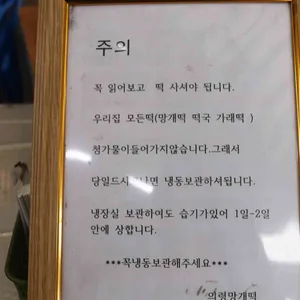 주의
꼭 읽어보고 떡 사셔야 됩니다.
우리집 모든떡(망개떡 떡국 가래떡 )
첨가물이들어가지않습니다.그래서
당일드시 나면 냉동보관하셔됩니다.
냉장실 보관하여도 습기가있어 1일-2일
안에 상합니다.
***꼭냉동보관해주세요***
의령망개떡